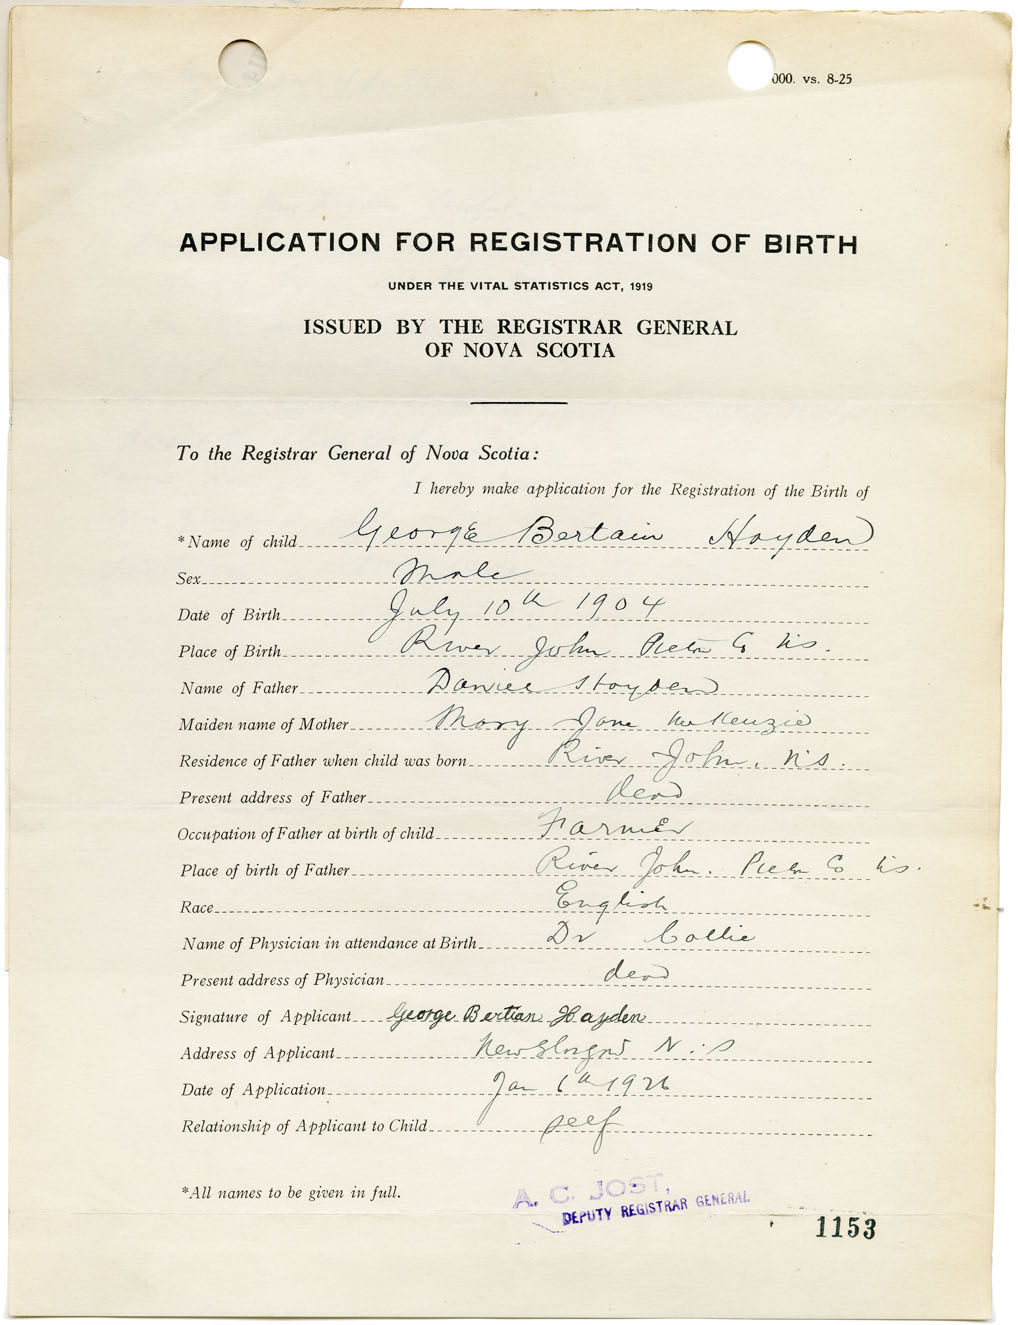 000. vs. 8-25
APPLICATION FOR REGISTRATION OF BIRTH
UNDER THE VITAL STATISTICS ACT, 1919
ISSUED BY THE REGISTRAR GENERAL
OF NOVA SCOTIA
To the Registrar General of Nova Scotia:
I hereby make application for the Registration of the Birth of
*Name of child George Bertain Hayden
Sex Male
Date of Birth July 10th 1904
Place of Birth River John Pictou Co NS.
Name of Father Daniel Hayden
Maiden name of Mother Mary Jane McKenzie
Residence of Father when child was born River John. NS.
Present address of Father dead
Occupation of Father at birth of child Farmer
Place of birth of Father River John. Pictou Co NS.
Race English
Name of Physician in attendance at Birth Dr Collie
Present address of Physician dead
Signature of Applicant George Bertian Hayden
Address of Applicant New Glasgow N.S
Date of Application Jan 6th 1926
Relationship of Applicant to Child self
*All names to be given in full.
A. C. JOST,
DEPUTY REGISTRAR GENERAL
1153